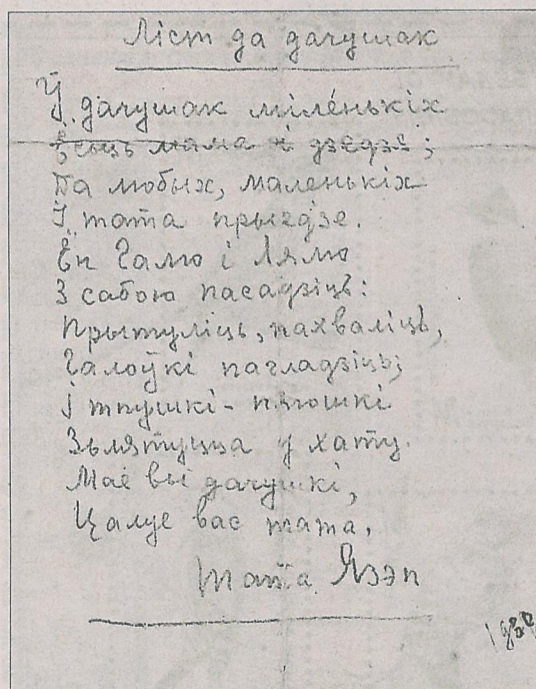 Ліст да дачушак
Ў дачушак міле́нькіх
Ёсьць мама і дзедзе;
Да любых, маленькіх
І тата прыедзе.
Ён Галю і Лялю
З сабою пасадзіць:
Прытуліць, пахваліць,
Галоўкі пагладзіць;
І тпушкі-пяюшкі
Зьлятуцца у хату.
Мае вы дачушкі,
Цалуе вас тата.
Тата Язэп